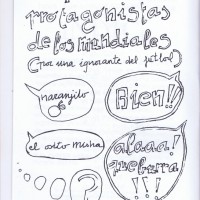 protagonistas
de los mundiales
(por una ignorante del futbol)
naranjito
Bien!!
el osito misha
alaaa!
que burra
!!!
?